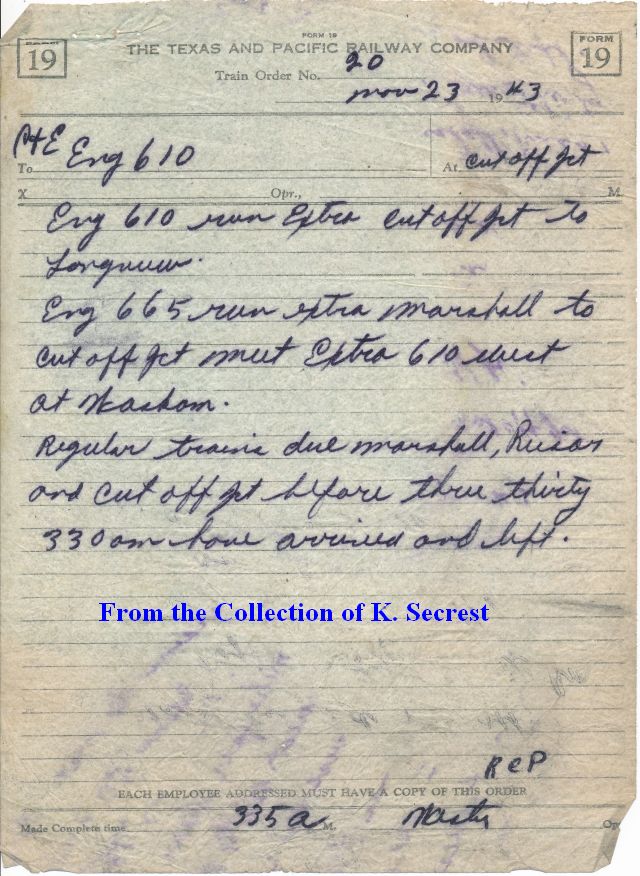 FORM 19
19
THE TEXAS AND PACIFIC RAILWAY COMPANY
FORM
19
Train Order No. 20
Nov 23 1943
To C&E Eng 610
At Cut off Jct
X Opr., M
Eng 610 run Extra Cut off Jct to
Longview.
Eng 665 run extra Marshall to
Cut off Jct meet Extra 610 West
at Waskom.
Regular trains due Marshall,
and Cut off Jct before three thirty
330am have arrived and left.
From the Collection of K. Secrest
RCP
EACH EMPLOYEE ADDRESSED MUST HAVE A COPY OF THIS ORDER
Made Complete time 335a M. Op